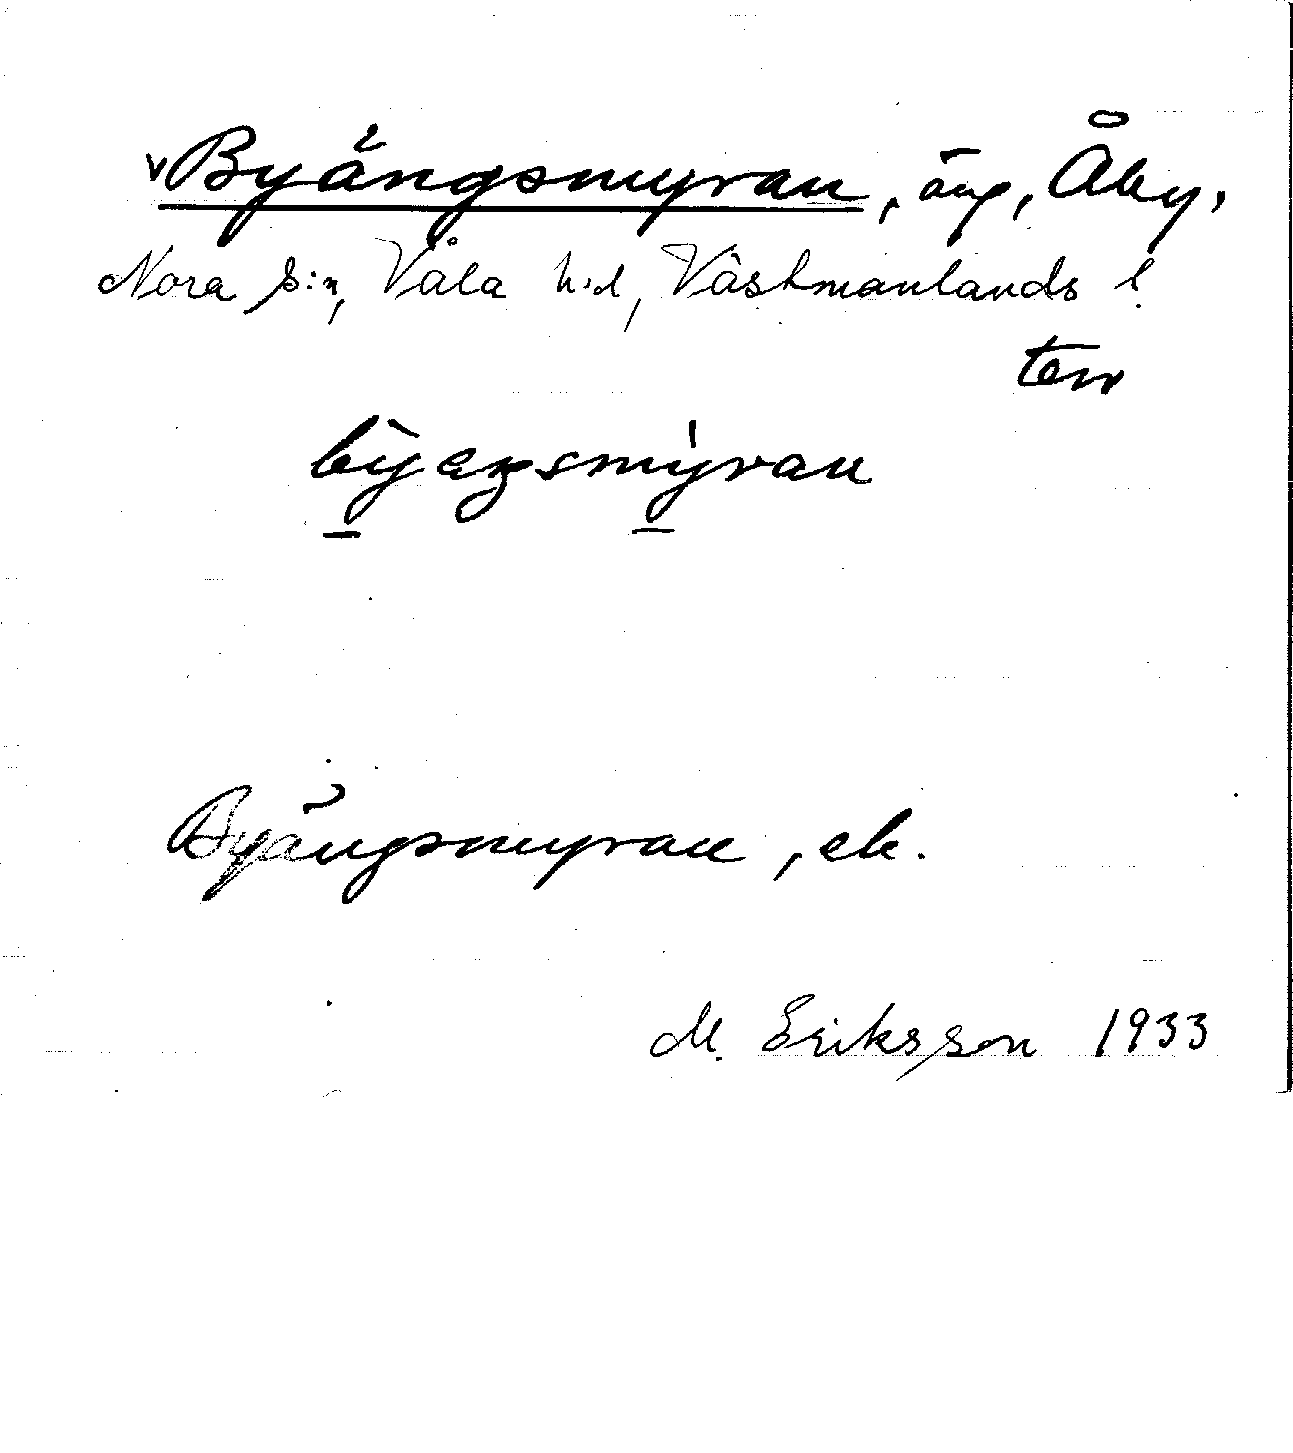 v Byängsmyran, äng, Åby,
Nora s:n, Våla h:d, Västmanlands l.
bỳaŋsmy̍ran
Byängsmyran, ek.
M. Eriksson 1933